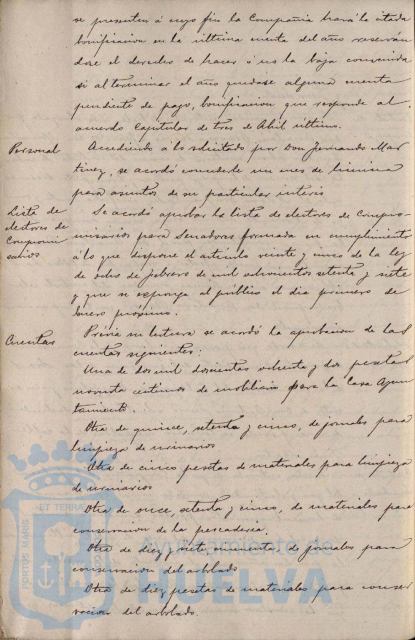 se presenten á cuyo fin la Compañia hará la citada
bonificacion en la última cuenta del año reserván
dose el derecho de hacer ó no la baja convenida
si al terminar el año quedase alguna cuenta
pendiente de pago, bonificacion que responde al
acuerdo Capitular de tres de Abril último.
Personal
Accediendo á lo solicitado por Don Fernando Mar
tinez, se acordó concederle un mes de licencia
para asuntos de su particular interés
Lista de
electores de
Compromi
sarios
Se acordó aprobar la lista de electores de Compro
misarios para Senadores formada en cumplimiento
á lo que dispone el artículo veinte y cinco de la Ley
de ocho de febrero de mil ochocientos setenta y siete
y que se esponga al público el dia primero de
Enero próximo.
Cuentas
Prévia su lectura se acordó la aprobacion de las
cuentas siguientes:
Una de dos mil doscientas ochenta y dos pesetas
noventa céntimos de mobiliario para la Casa Ayun
tamiento.
Otra de quince, setenta y cinco, de jornales para
limpieza de urinarios
Otra de cinco pesetas de materiales para limpieza
de urinarios
Otra de once, setenta y cinco, de materiales para
conservacion de la pescaderia.
Otra de diez y siete, cincuenta de jornales para
conservacion del arbolado
Otra de diez pesetas de materiales para conser
vacion del arbolado.
PORTUS MARIS
ET TERRAE
Ayuntamiento de
HUELVA